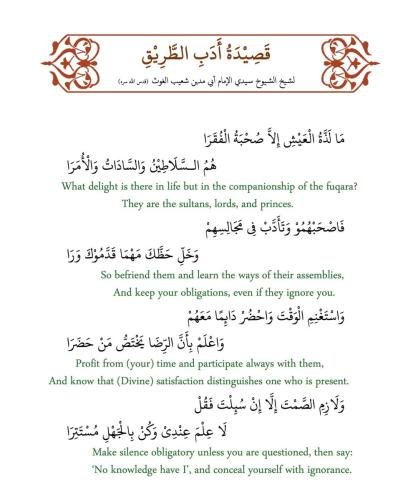 قَصِيْدَةُ أَدَبِ الطَّرِيْقِ
لشيخ الشيوخ سيدي الإمام أبي مدين شعيب الغوث (قدس الله سره)
مَا لَذَّةُ الْعَيْشِ إِلاَّ صُحْبَةُ الْفُقَرَا
هُمُ الـسَّلَاطِيْنُ وَالسَّادَاتُ وَالْأُمَرَا
What delight is there in life but in the companionship of the fuqara?
They are the sultans, lords, and princes.
فَاصْحَبْهُمُوْ وَتَأَدَّبْ فِى مَجَالِسِهِمْ
وَخَلِّ حَظَّكَ مَهْمَا قَدَّمُوْكَ وَرَا
So befriend them and learn the ways of their assemblies,
And keep your obligations, even if they ignore you.
وَاسْتَغْنِمِ الْوَقْتَ وَاحْضُرْ دَايِمًا مَعَهُمْ
وَاعْلَمْ بِأَنَّ الرِّضَا يَخْتَصُّ مَنْ حَضَرَا
Profit from (your) time and participate always with them,
And know that (Divine) satisfaction distinguishes one who is present.
وَلَازِمِ الصَّمْتَ إِلَّا إِنْ سُيِلْتَ فَقُلْ
لَا عِلْمَ عِنْدِىْ وَكُنْ بِالْجَهْلِ مُسْتَتِرَا
Make silence obligatory unless you are questioned, then say:
'No knowledge have I', and conceal yourself with ignorance.